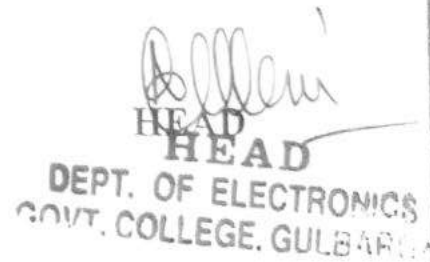 HEAD
HEAD
DEPT. OF ELECTRONICS
GOVT. COLLEGE. GULBARGA